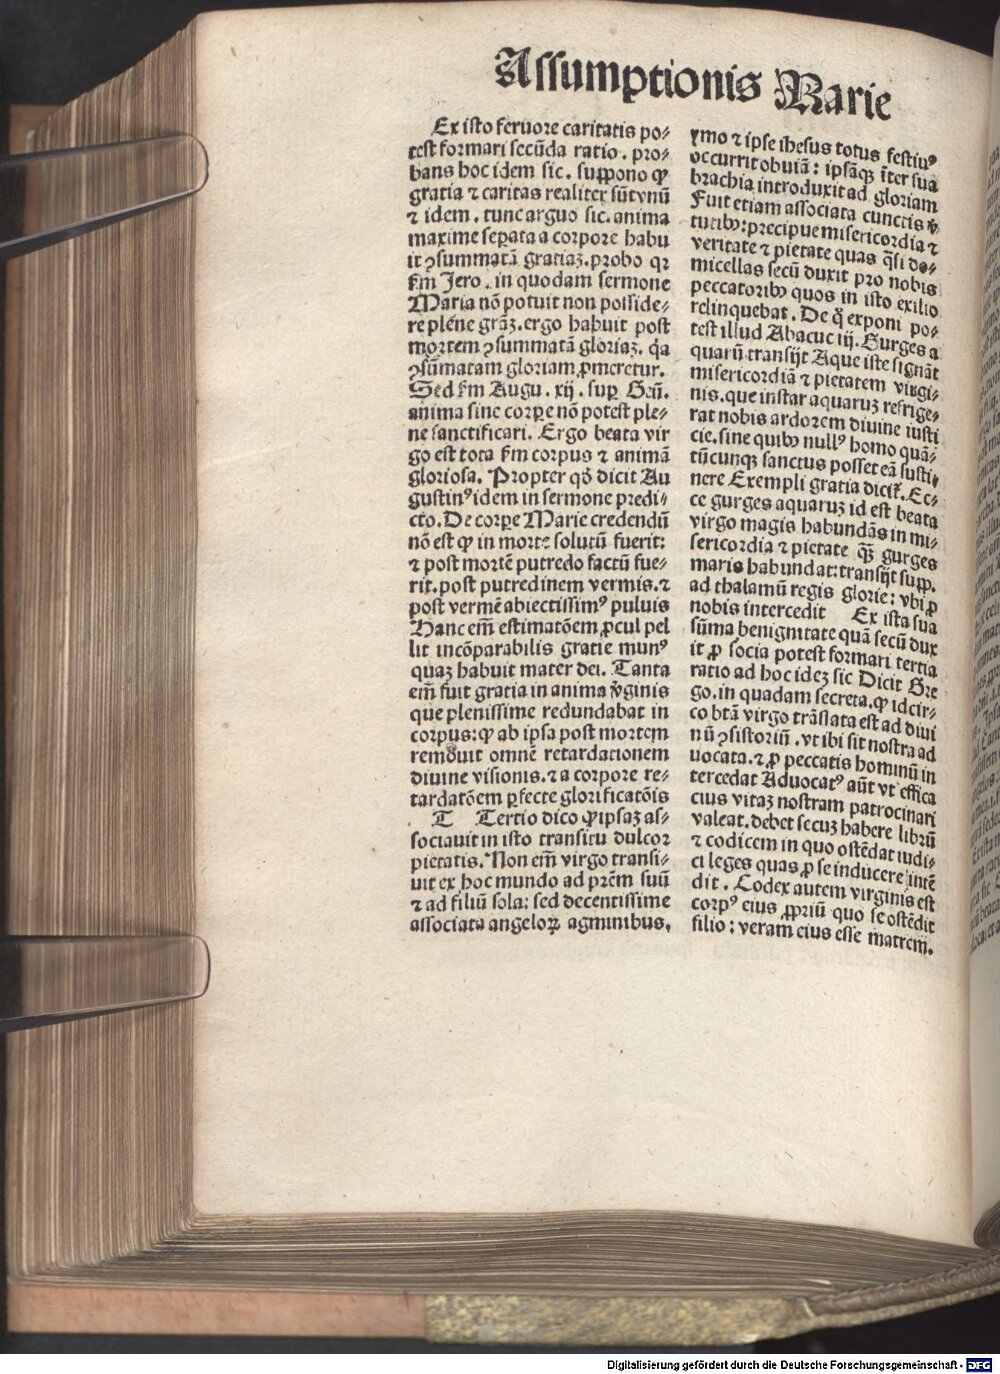 Assumptionis Marie
Ex isto feruore caritatis po⸗
test formari secūda ratio. pro⸗
bans hoc idem sic. suppono ꝙ
gratia ⁊ caritas realiter sūt vnū
⁊ idem. tunc arguo sic. anima
maxime seꝑata a corpore habu
it ꝯsummatā gratiaꝫ. probo qꝛ
ẜm Jero. in quodam sermone
Maria nō potuit non posside⸗
re plēne grāꝫ. ergo habuit post
mortem ꝯsummatā gloriaꝫ. q̄a
ꝯsūmatam gloriam ꝓmeretur.
Sed ẜm Augu. xij. suꝑ Geñ.
anima sine corꝑe nō potest ple⸗
ne sanctificari. Ergo beata vir
go est tota ẜm corpus ⁊ animā
gloriosa. Propter qđ dicit Au
gustinꝰ idem in sermone predi⸗
cto. De corꝑe Marie credendū
nō est ꝙ in morte solutū fuerit:
⁊ post mortē putredo factū fue⸗
rit. post putredinem vermis. ⁊
post vermē abiectissimꝰ puluis
Hanc em̄ estimatōem ꝓcul pel
lit incōparabilis gratie munꝰ
quaꝫ habuit mater dei. Tanta
em̄ fuit gratia in anima v̄ginis
que plenissime redundabat in
corpus: ꝙ ab ipsa post mortem
remouit omnē retardationem
diuine visionis. ⁊ a corpore re⸗
tardatōem ꝑfecte glorificatōis
T Tertio dico ꝙ ipsaꝫ as⸗
sociauit in isto transitu dulcor
pietatis. Non em̄ virgo transi⸗
uit ex hoc mundo ad pr̄em suū
⁊ ad filiū sola: sed decentissime
associata angeloꝝ agminibus,
ymo ⁊ ipse ihesus totus festiuꝰ
occurrit obuiā: ipsāqꝫ īter sua
brachia introduxit ad gloriam
Fuit etiam associata cunctis v̄
tutibꝰ: precipue misericordia ⁊
veritate ⁊ pietate quas q̄si do⸗
micellas secū duxit pro nobis
peccatoribꝰ quos in isto exilio
relinquebat. De q̄ exponi po⸗
test illud Abacuc iij. Gurges a
quarū transijt Aque iste signāt
misericordiā ⁊ pietatem virgi⸗
nis. que instar aquaruꝫ refrige⸗
rat nobis ardorem diuine iusti
cie. sine quibꝰ nullꝰ homo quā⸗
tūcunqꝫ sanctus posset eā susti⸗
nere Exempli gratia dicit̄. Ec⸗
ce gurges aquaruꝫ id est beata
virgo magis habundās in mi⸗
sericordia ⁊ pietate qᷓꝫ gurges
maris habundat: transijt supp.
ad thalamū regis glorie: vbi ꝓ
nobis intercedit Ex ista sua
sūma benignitate quā secū dux
it ꝓ socia potest formari tertia
ratio ad hoc ideꝫ sic Dicit Gre
go. in quadam secreta. ꝙ idcir⸗
co btā virgo trāslata est ad diui
nū ꝯsistoriū. vt ibi sit nostra ad
uocata. ⁊ ꝓ peccatis hominū in
tercedat Aduocatꝰ aūt vt effica
cius vitaꝫ nostram patrocinari
valeat. debet secuꝫ habere librū
⁊ codicem in quo ostēdat iudi⸗
ci leges quas ꝓ se inducere intē
dit. Codex autem virginis est
corpꝰ eius ꝓpriū quo se ostēdit
filio: veram eius esse matrem.
Digitalisierung gefördert durch die Deutsche Forschungsgemeinschaft - DFG